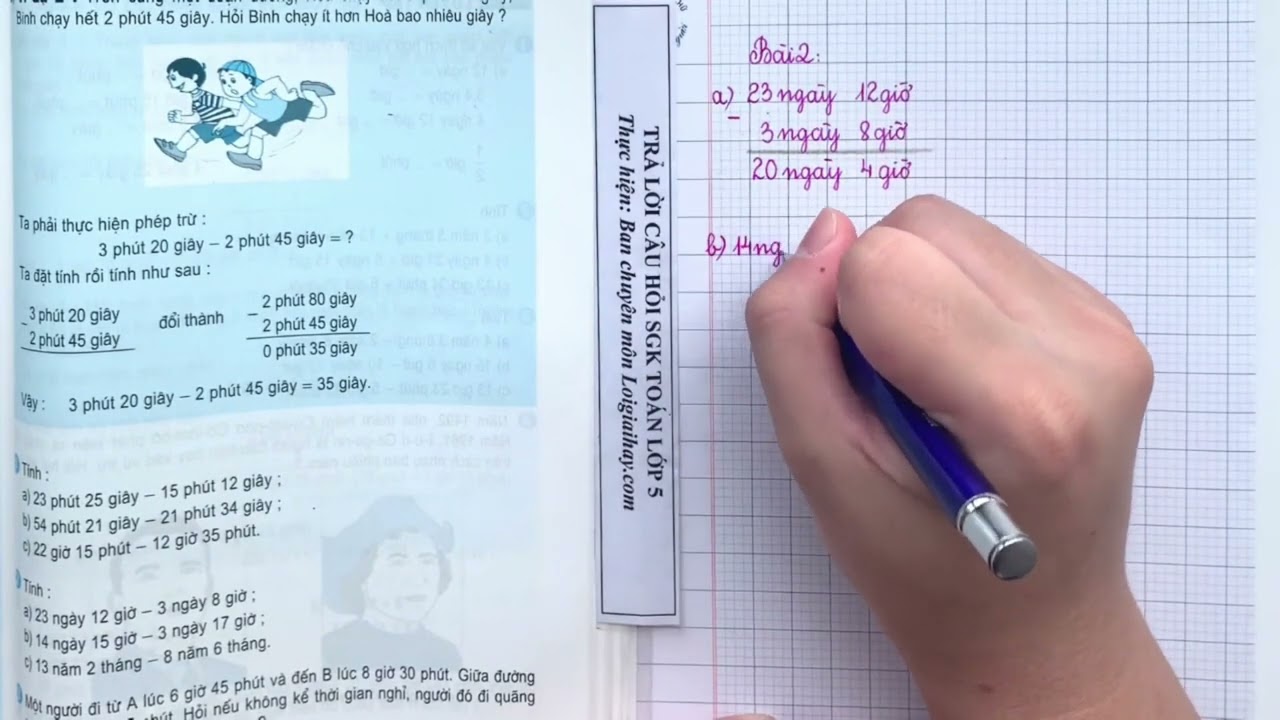 Bình chạy hết 2 phút 45 giây. Hỏi Bình chạy ít hơn Hoà bao nhiêu giây ?
Ta phải thực hiện phép trừ :
3 phút 20 giây – 2 phút 45 giây = ?
Ta đặt tính rồi tính như sau :
– 3 phút 20 giây
2 phút 45 giây
đổi thành
– 2 phút 80 giây
2 phút 45 giây
0 phút 35 giây
Vậy : 3 phút 20 giây – 2 phút 45 giây = 35 giây.
Tính :
a) 23 phút 25 giây – 15 phút 12 giây ;
b) 54 phút 21 giây – 21 phút 34 giây ;
c) 22 giờ 15 phút – 12 giờ 35 phút.
Tính :
a) 23 ngày 12 giờ – 3 ngày 8 giờ ;
b) 14 ngày 15 giờ – 3 ngày 17 giờ ;
c) 13 năm 2 tháng – 8 năm 6 tháng.
Một người đi từ A lúc 6 giờ 45 phút và đến B lúc 8 giờ 30 phút. Giữa đường
phút. Hỏi nếu không kể thời gian nghỉ, người đó đi quãng
TRẢ LỜI CÂU HỎI SGK TOÁN LỚP 5
Thực hiện: Ban chuyên môn Loigiaihay.com
Bài 2:
a) 23 ngày 12 giờ
– 3 ngày 8 giờ
20 ngày 4 giờ
b) 14 ng